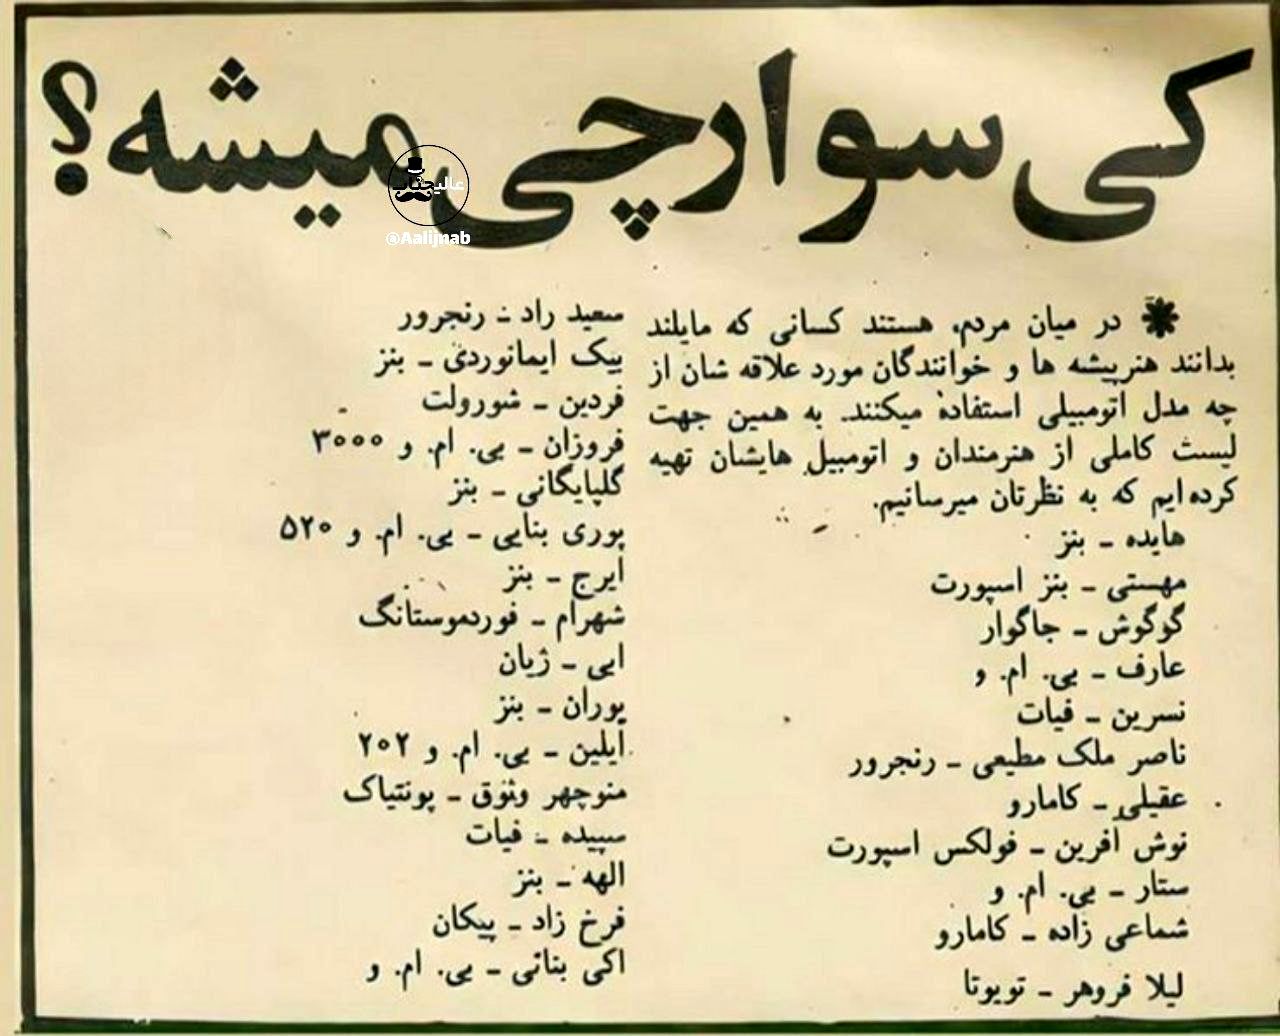 کی سوارچی میشه؟
عالیجناب
@Aalijnab
در میان مردم، هستند کسانی که مایلند
بدانند هنرپیشه ها و خوانندگان مورد علاقه شان از
چه مدل اتومبیلی استفاده میکنند. به همین جهت
لیست کاملی از هنرمندان و اتومبیل هایشان تهیه
کرده ایم که به نظرتان میرسانیم.
هایده ـ بنز
مهستی ـ بنز اسپورت
گوگوش ـ جاگوار
عارف ـ بی. ام. و
نسرین ـ فیات
ناصر ملک مطیعی ـ رنجرور
عقیلی ـ کامارو
نوش آفرین ـ فولکس اسپورت
ستار ـ بی. ام. و
شماعی زاده ـ کامارو
لیلا فروهر ـ تویوتا
سعید راد ـ رنجرور
بیک ایمانوردی ـ بنز
فردین ـ شورولت
فروزان ـ بی. ام. و ۳۰۰۰
گلپایگانی ـ بنز
پوری بنایی ـ بی. ام. و ۵۲۰
ایرج ـ بنز
شهرام ـ فوردموستانگ
ابی ـ ژیان
پوران ـ بنز
آیلین ـ بی. ام. و ۲۰۲
منوچهر وثوق ـ پونتیاک
سپیده ـ فیات
الهه ـ بنز
فرخ زاد ـ پیکان
اکی بنائی ـ بی. ام. و